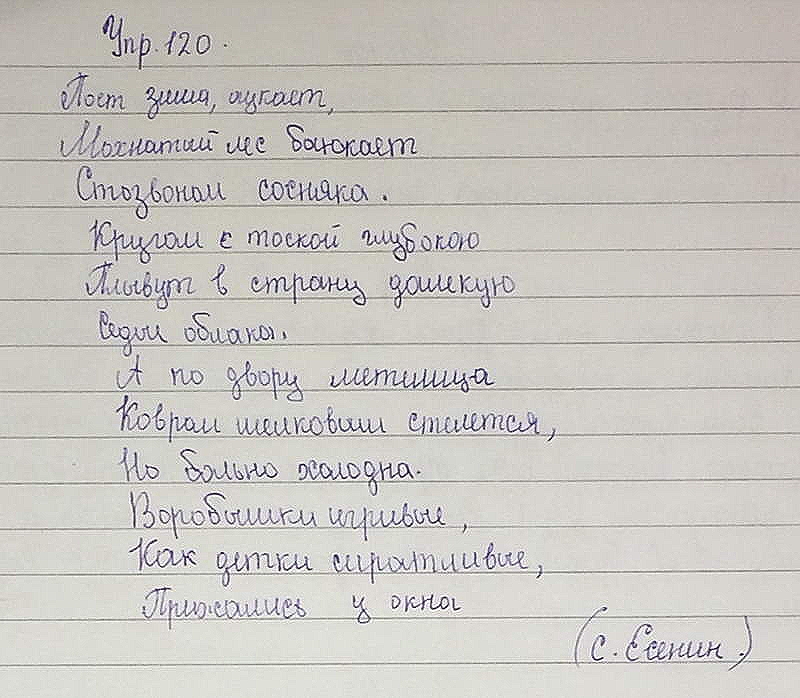 Упр. 120.
Поет зима, аукает,
Мохнатый лес баюкает
Стозвоном сосняка.
Кругом с тоской глубокою
Плывут в страну далекую
Седые облака.
А по двору метелица
Ковром шелковым стелется,
Но больно холодна.
Воробышки игривые,
Как детки сиротливые,
Прижались у окна
(С. Есенин.)